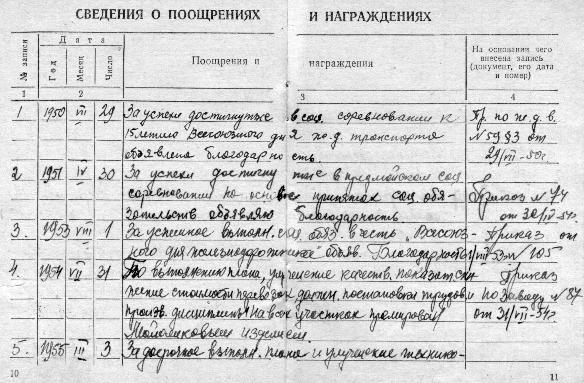 СВЕДЕНИЯ О ПООЩРЕНИЯХ И НАГРАЖДЕНИЯХ
№ записи
Дата
Год
Месяц
Число
Поощрения и награждения
На основании чего внесена запись (документ, его дата и номер)
1 2 3 4
1 1950 VII 29 За успехи достигнутые в соц. соревновании к Пр. по ж.д. в.
15 летию Всесоюзного дня ж.д. транспорта № 5993 от
объявлена благодарность. 29/VII-50г.
2 1951 IV 30 За успехи достигнутые в предмайском соц
соревновании на основе принятых соц. обя- Приказ № 74
зательств объявляю благодарность от 30/IV-51г.
3. 1953 VIII 1 За успешное выполн. соц. обяз. в честь "Всесоюз- Приказ от
ного дня железнодорожника" объяв. Благодарность 1/VIII-53г № 105
4. 1954 VII 31 По выполнению плана, улучшение качеств. показат. Приказ
жение стоимости должн. постановки трудовой по Заводу № 87
произв. дисциплины на всех участках премирован от 31/VII-54г
изделием
5. 1955 III 3 За досрочное выполн. плана и улучшение технико-
10 11